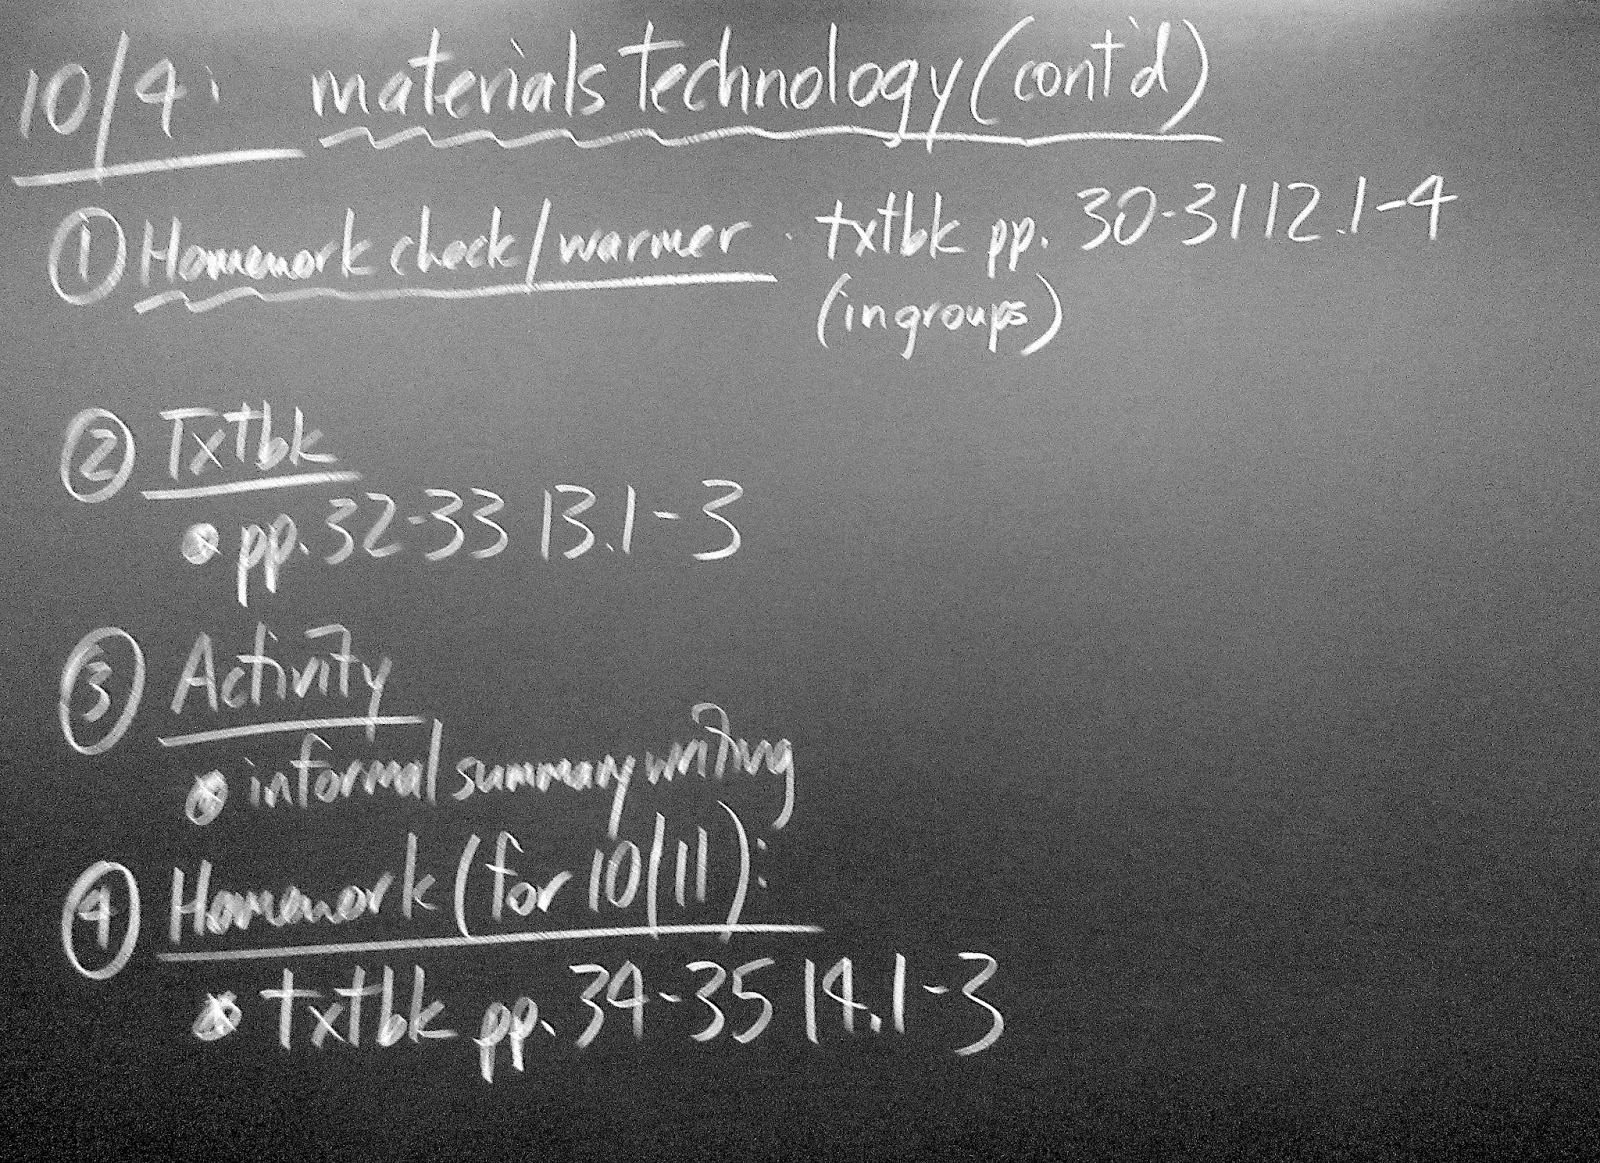 10/4: materials technology (cont'd)
① Homework check/warmer · txtbk pp. 30-31 12.1-4
(in groups)
② Txtbk
• pp. 32-33 13.1-3
③ Activity
• informal summary writing
④ Homework (for 10/11):
• txtbk pp. 34-35 14.1-3